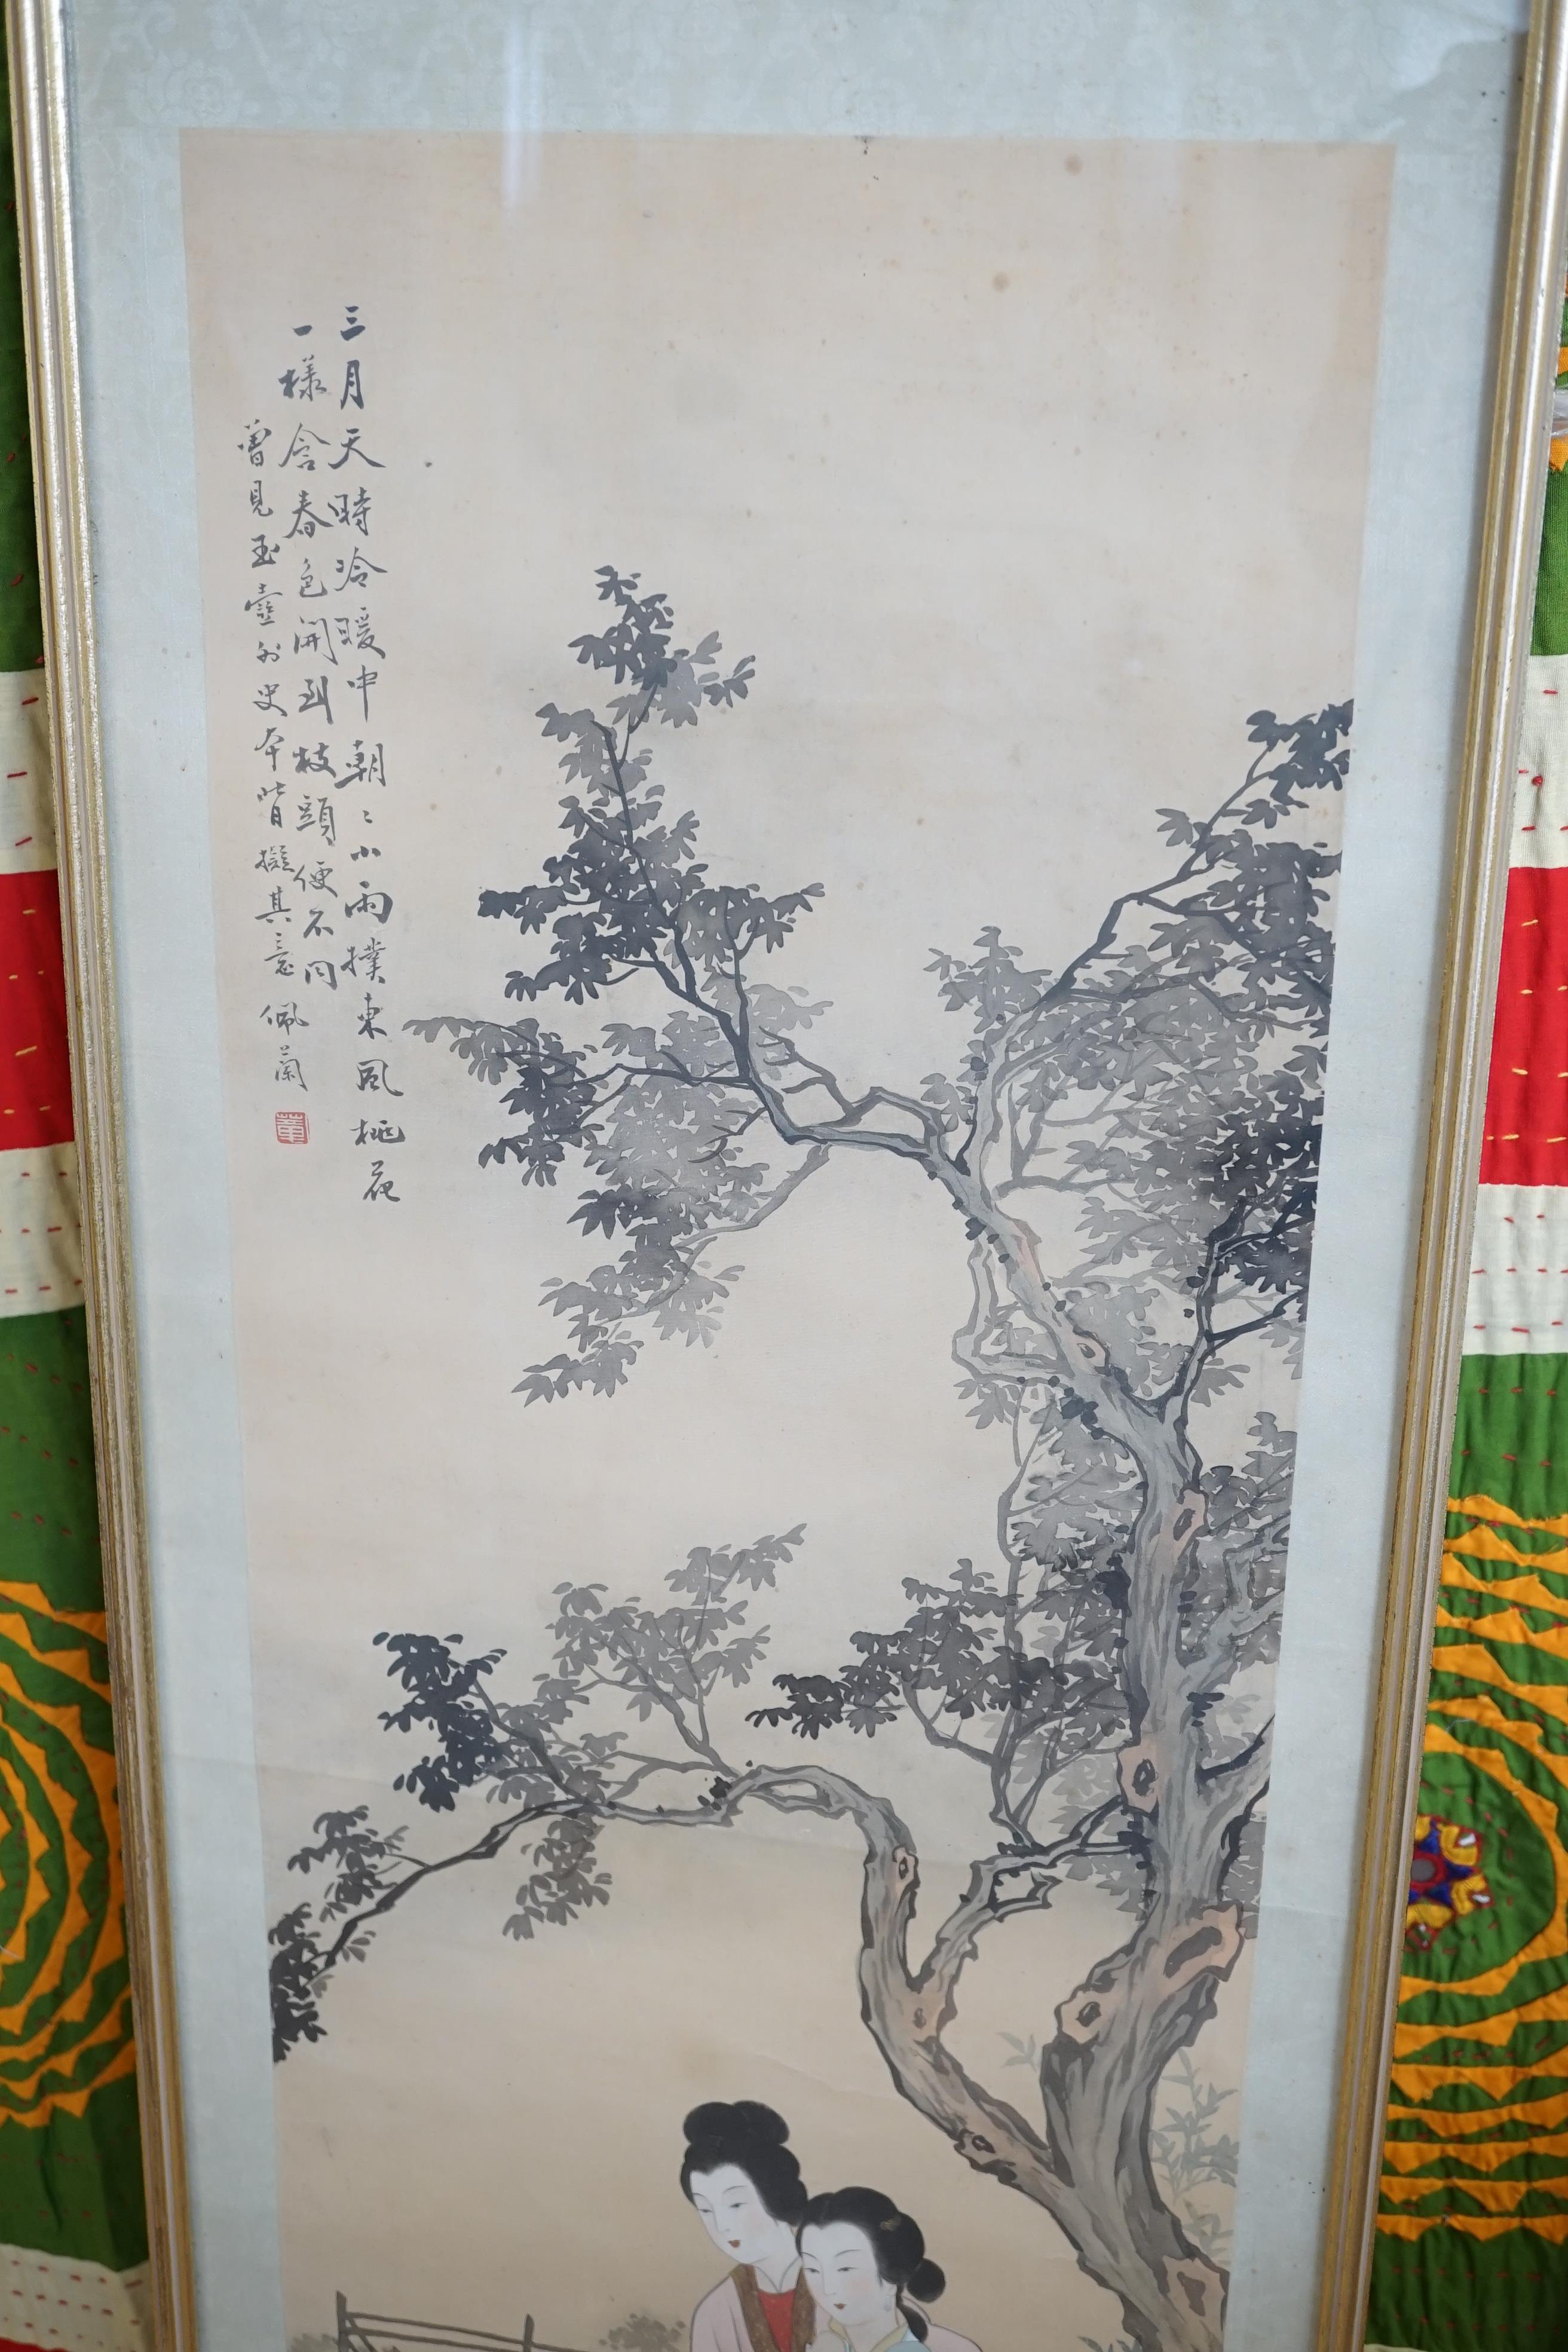 三月天時冷暖中朝〻小雨撲東風桃花
一樣含春色開到枝頭便不同
曾見玉壺外史本背擬其意佩蘭
董